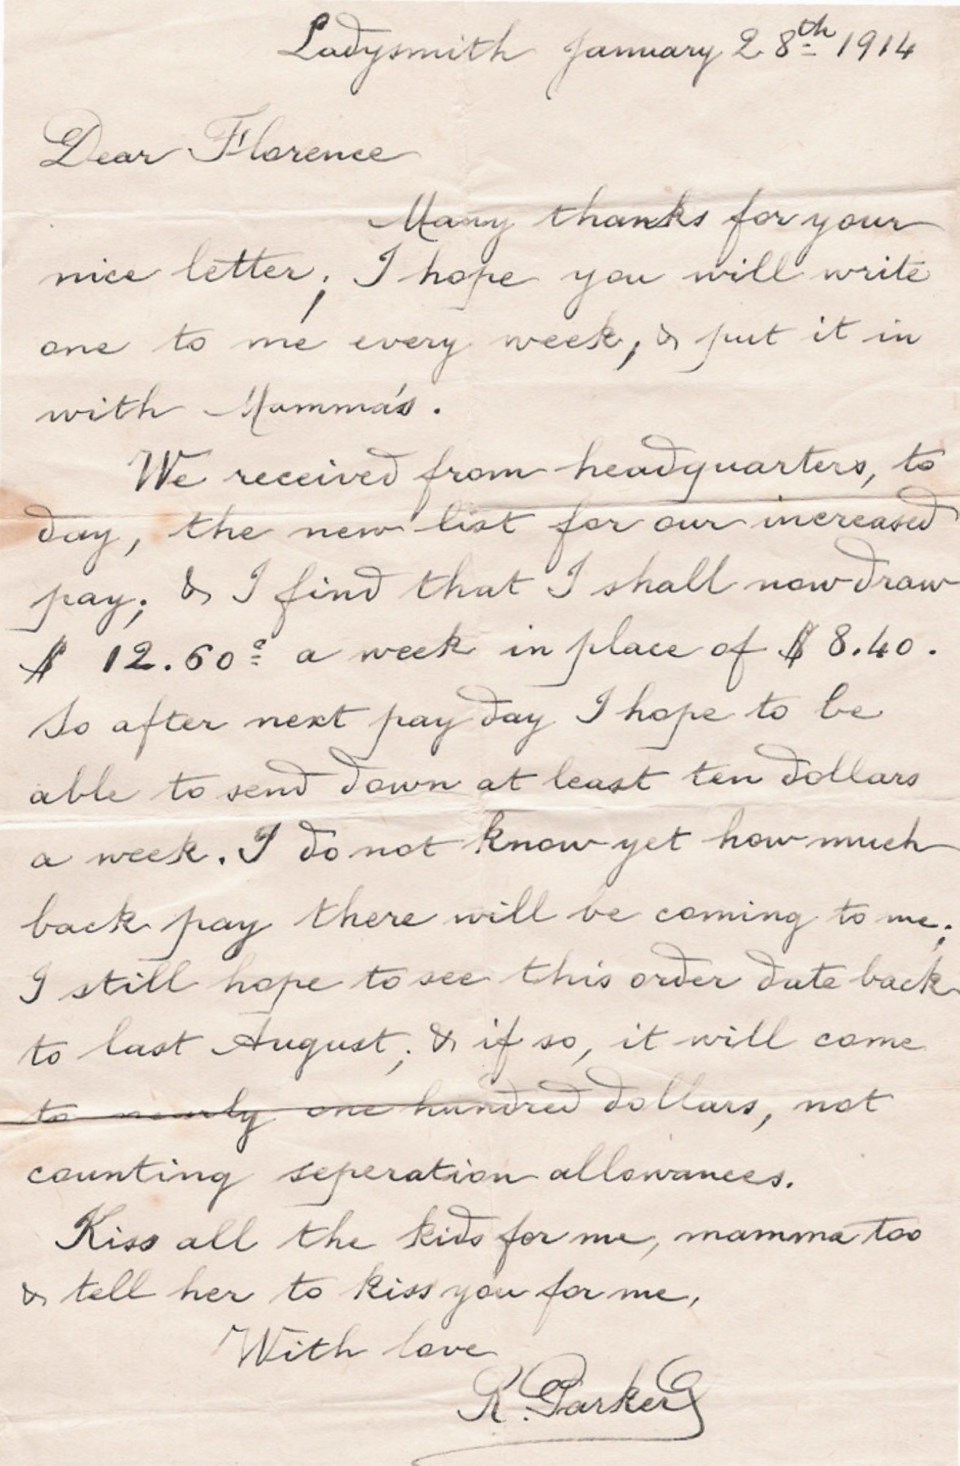 Ladysmith January 28th 1914
Dear Florence
Many thanks for your
nice letter; I hope you will write
one to me every week, & put it in
with Mamma's.
We received from headquarters, to
day, the new list for our increased
pay; & I find that I shall now draw
$ 12.60c a week in place of $ 8.40.
So after next pay day I hope to be
able to send down at least ten dollars
a week. I do not know yet how much
back pay there will be coming to me;
I still hope to see this order date back
to last August; & if so, it will come
to nearly one hundred dollars, not
counting seperation allowances.
Kiss all the kids for me, mamma too
& tell her to kiss you for me,
With love
R. Parker